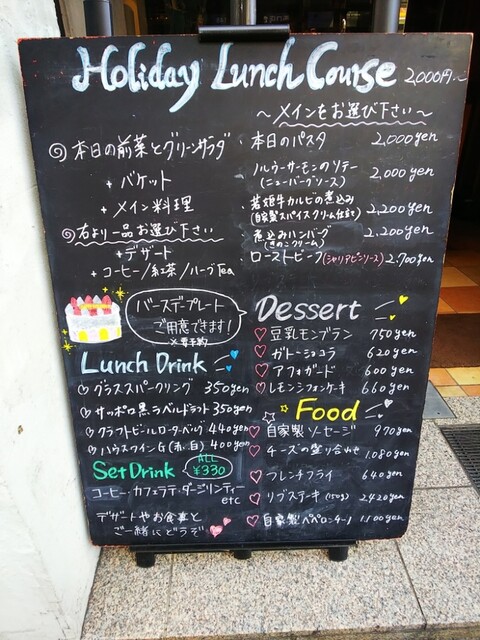 Holiday Lunch Course 2,000円〜
〜メインをお選び下さい〜
◎本日の前菜とグリーンサラダ
+ バケット
+ メイン料理
◎右より一品お選び下さい
+デザート
+ コーヒー/紅茶/ハーブTea
・本日のパスタ 2,000yen
・ノルウーサーモンのソテー 2,000yen
(ニューバーグソース)
・若姫牛カルビの煮込み 2,200yen
(自家製スパイスクリーム仕立て)
・煮込みハンバーグ 2,200yen
(きのこクリーム)
・ローストビーフ(シャリアピンソース) 2,700yen
バースデープレート
ご用意できます!
※要予約
Lunch Drink
グラススパークリング 350yen
サッポロ黒ラベルドラフト 350yen
クラフトビール 440yen
ハウスワインG(赤,白) 400yen
Set Drink ALL ¥330
コーヒー・カフェラテ・ダージリンティー
etc
デザートやお食事と
ご一緒にどうぞ
Dessert
♡豆乳モンブラン 750yen
♡ガトーショコラ 620yen
♡アフォガード 600yen
♡レモンシフォンケーキ 660yen
Food
♡自家製ソーセージ 970yen
♡チーズの盛り合わせ 1,080yen
♡フレンチフライ 640yen
♡リブステーキ(150g) 2,420yen
♡自家製ペペロンチーノ 1,100yen